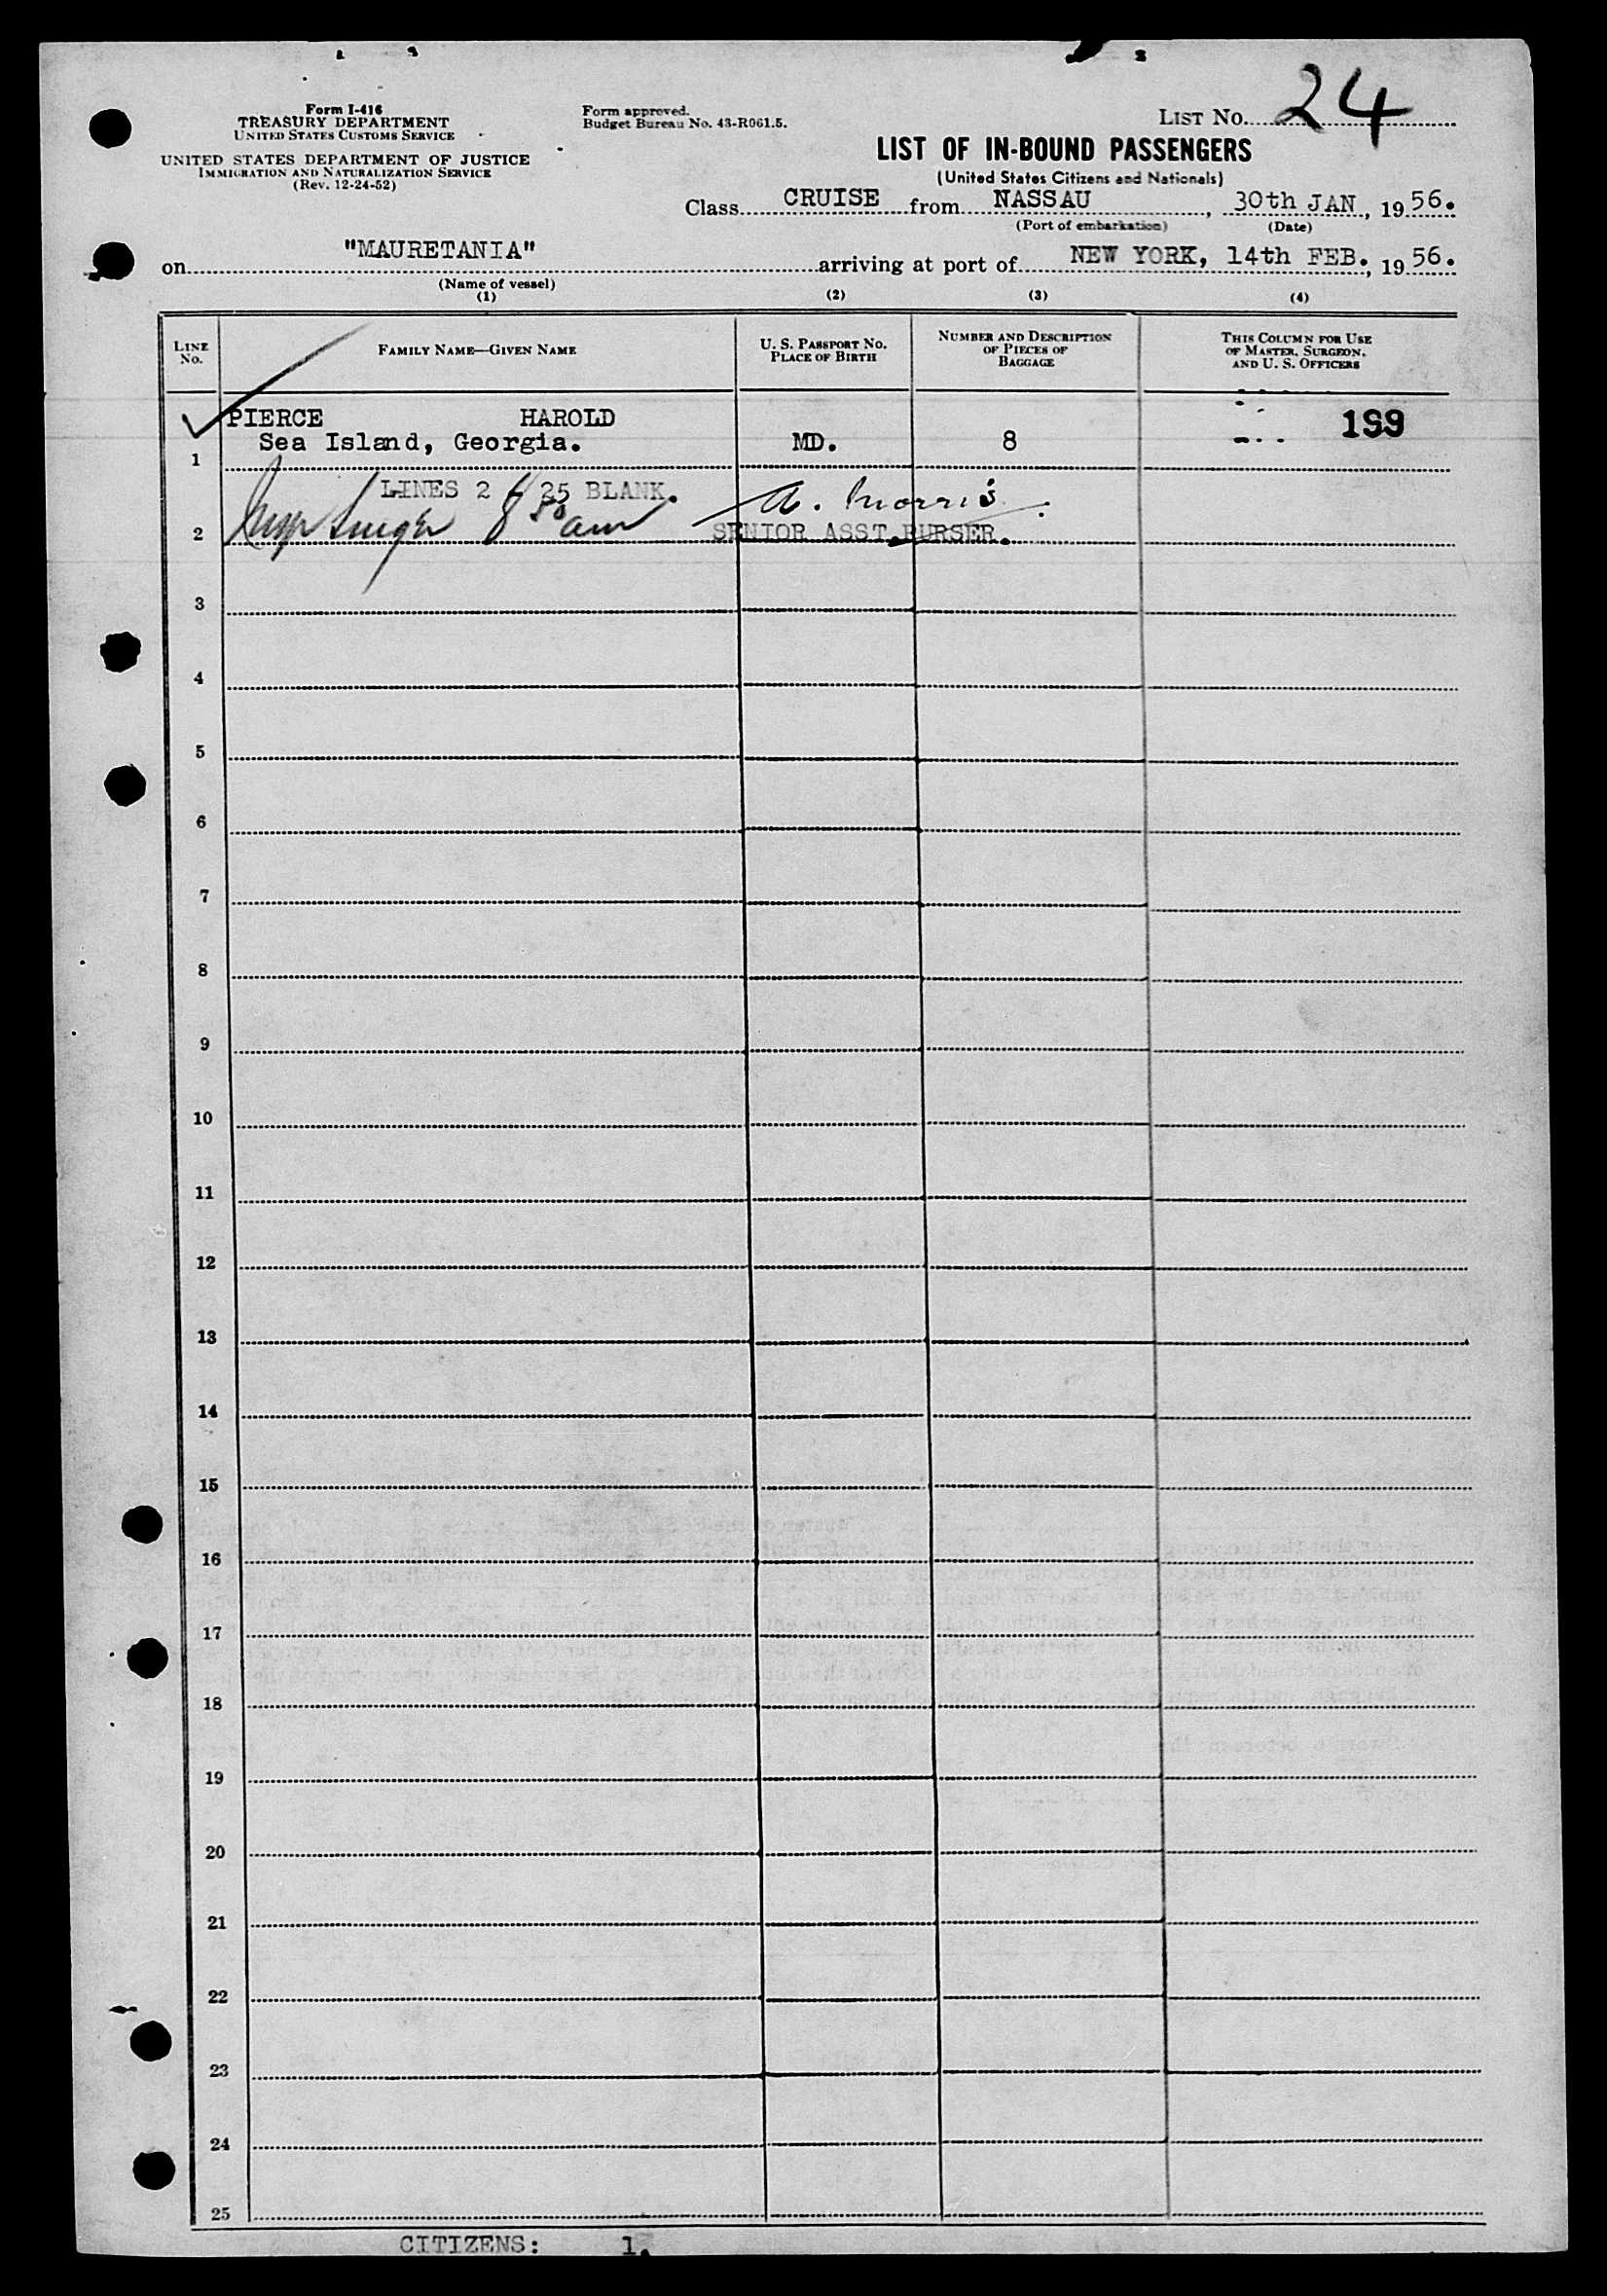 Form I-416
TREASURY DEPARTMENT
UNITED STATES CUSTOMS SERVICE
UNITED STATES DEPARTMENT OF JUSTICE
IMMIGRATION AND NATURALIZATION SERVICE
(Rev. 12-24-52)
Form approved.
Budget Bureau No. 43-R061.5.
LIST No. 24
LIST OF IN-BOUND PASSENGERS
(United States Citizens and Nationals)
Class CRUISE from NASSAU, 30th JAN, 1956.
(Port of embarkation) (Date)
on "MAURETANIA" arriving at port of NEW YORK, 14th FEB., 1956.
(Name of vessel)
(1) (2) (3) (4)
LINE No. FAMILY NAME—GIVEN NAME U. S. PASSPORT No. PLACE OF BIRTH NUMBER AND DESCRIPTION OF PIECES OF BAGGAGE THIS COLUMN FOR USE OF MASTER, SURGEON, AND U. S. OFFICERS
PIERCE HAROLD 199
1 Sea Island, Georgia. MD. 8
LINES 2 25 BLANK. A. Morris
2 8 50 am SENIOR ASST. PURSER.
3
4
5
6
7
8
9
10
11
12
13
14
15
16
17
18
19
20
21
22
23
24
25
CITIZENS: 1.